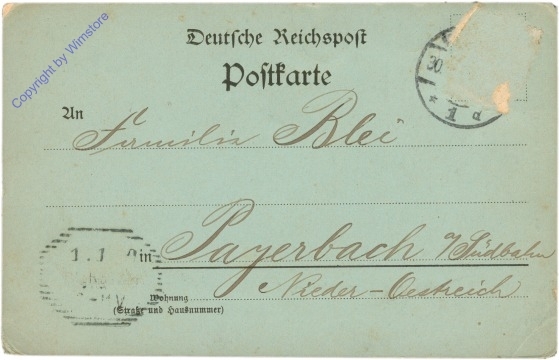 Copyright by Wimstore
Deutsche Reichspost
Postkarte
An
Familie Blei
in Payerbach a/Südbahn
Nieder-Oestreich
Wohnung
(Straße und Hausnummer)
1 d